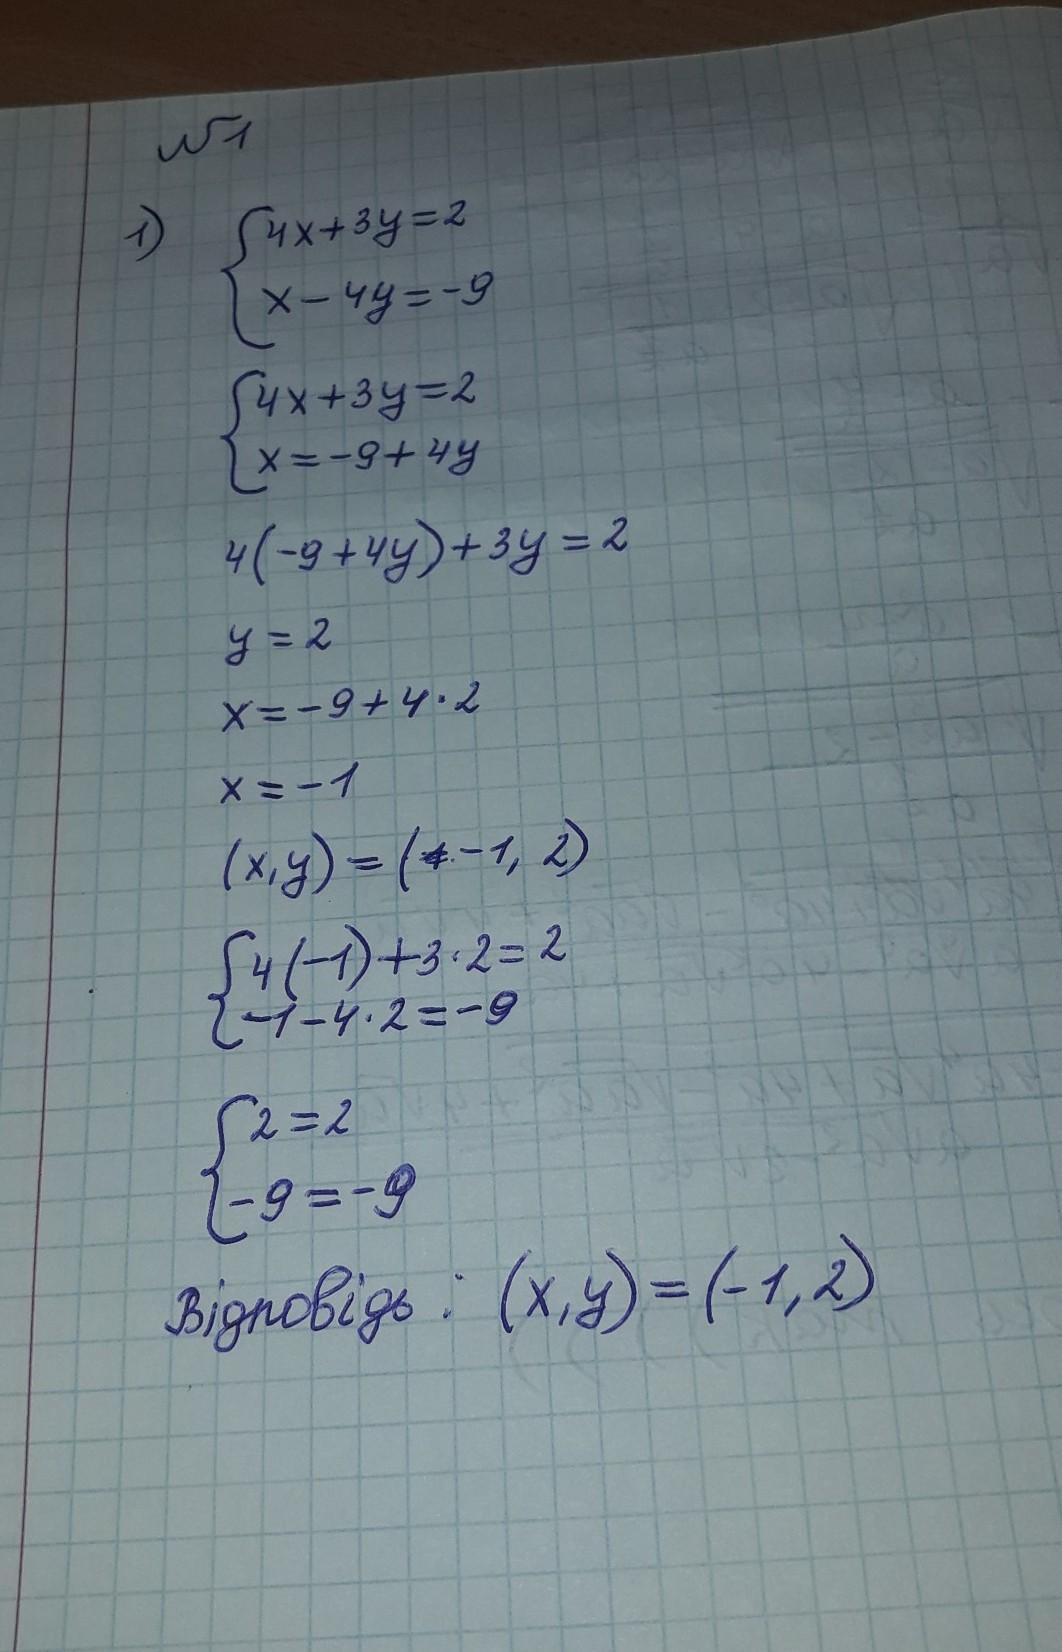 №1
1) {4x+3y=2
x-4y=-9
{4x+3y=2
x=-9+4y
4(-9+4y)+3y=2
y=2
x=-9+4·2
x=-1
(x,y)=(-1, 2)
{4(-1)+3·2=2
-1-4·2=-9
{2=2
-9=-9
Відповідь: (x,y)=(-1,2)